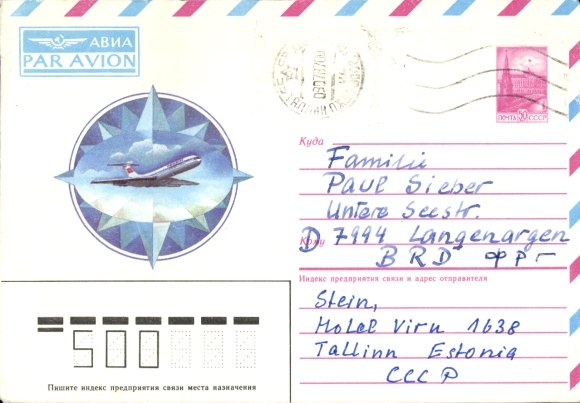 АВИА
PAR AVION
ПОЧТА 50 СССР
Куда
Familie
Paul Sieber
Untere Seestr.
Кому
D 7994 Langenargen
BRD ФРГ
Индекс предприятия связи и адрес отправителя
Stein,
Hotel Viru 1638
Tallinn Estonia
CCCP
500
Пишите индекс предприятия связи места назначения